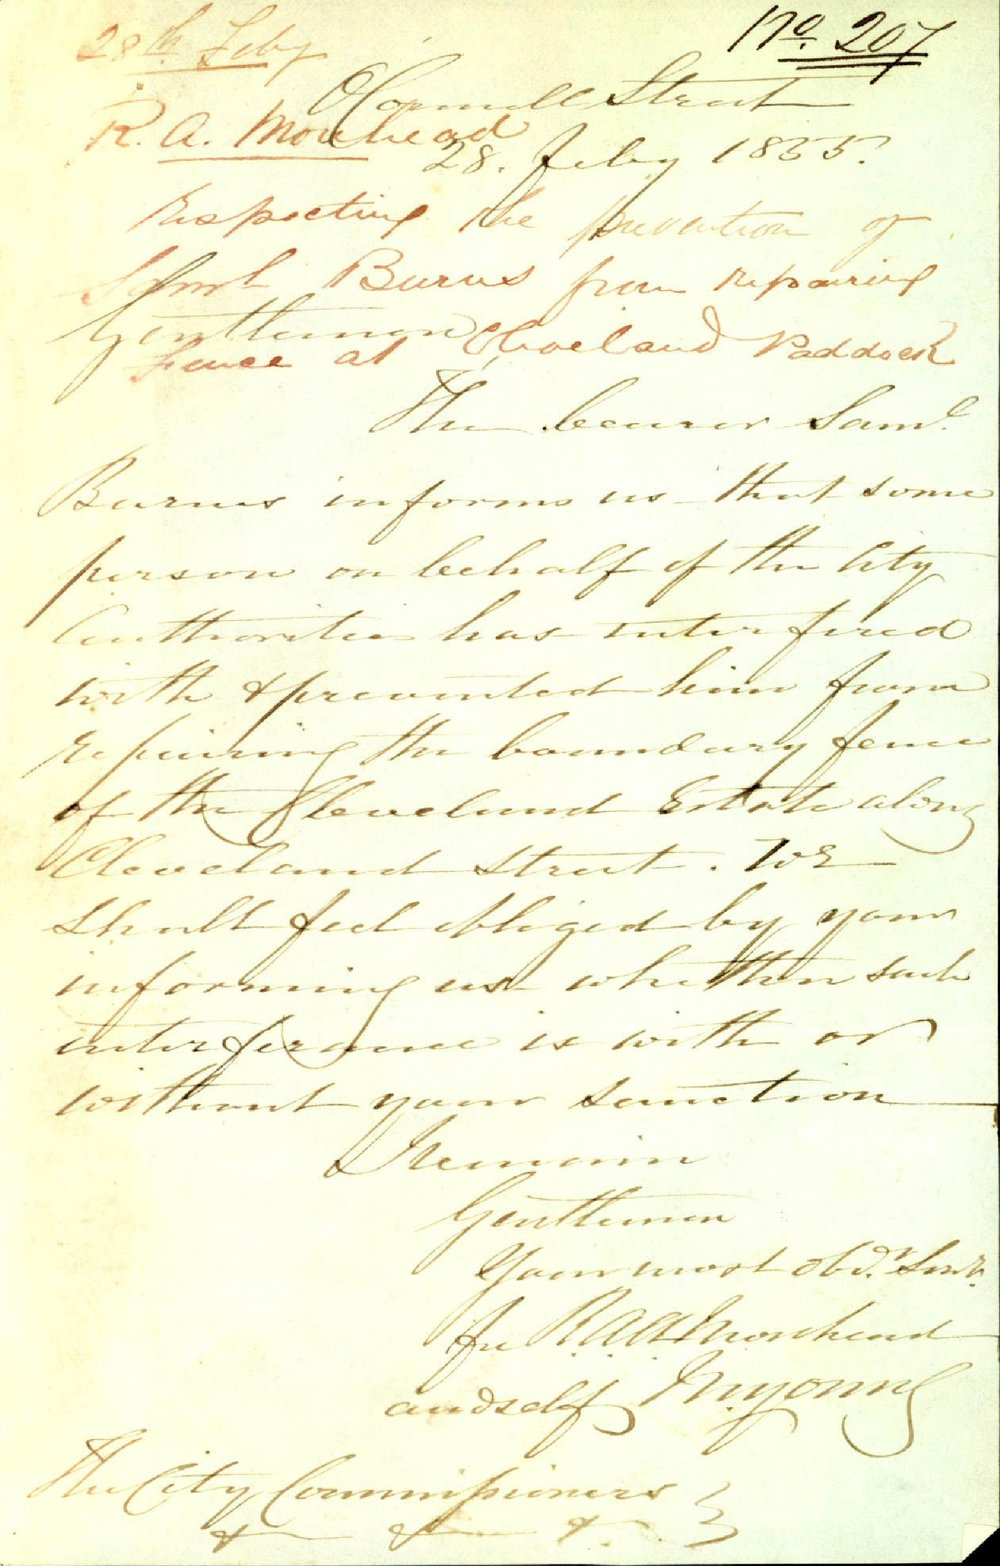 No. 207
28th Feby
O'Connell Street
R. A. Morehead
28. Feby 1855.
Respecting the prevention of
Saml Burns from repairing
Gentlemen
fence at Cleveland Paddock
The bearer Saml.
Burns informs us that some
person on behalf of the City
Authorities has interfered
with & prevented him from
repairing the boundary fence
of the Cleveland Estate along
Cleveland Street. We
shall feel obliged by your
informing us whether such
interference is with or
without your sanction
I remain
Gentlemen
Your most obdt. Servt.
for R. A. A. Morehead
and self M. Young
The City Commissioners
& & &